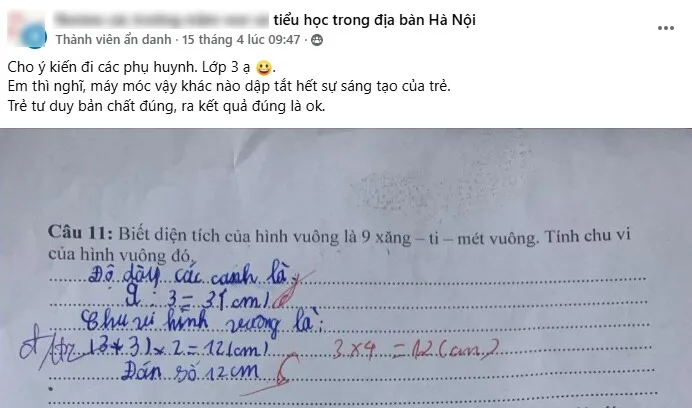 tiểu học trong địa bàn Hà Nội
Thành viên ẩn danh · 15 tháng 4 lúc 09:47 ·
Cho ý kiến đi các phụ huynh. Lớp 3 ạ 😀.
Em thì nghĩ, máy móc vậy khác nào dập tắt hết sự sáng tạo của trẻ.
Trẻ tư duy bản chất đúng, ra kết quả đúng là ok.
Câu 11: Biết diện tích của hình vuông là 9 xăng – ti – mét vuông. Tính chu vi
của hình vuông đó.
Độ dày các canh là
9 : 3 = 3 (cm)
Chu vi hình vuông là:
(3+3) x 2 = 12 (cm) 3 x 4 = 12 (cm)
Đán số 12 cm